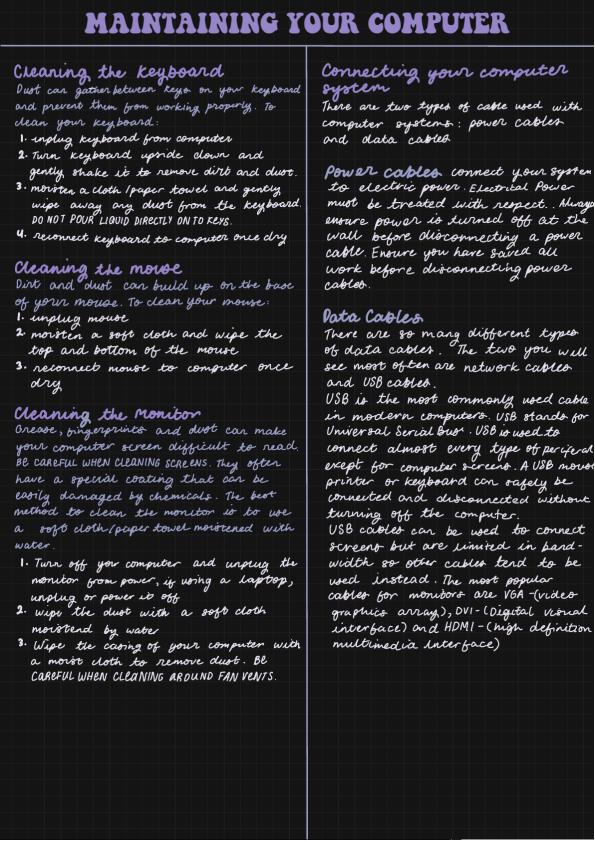 MAINTAINING YOUR COMPUTER
Cleaning the keyboard
Dust can gather between keys on your keyboard
and prevent them from working properly. To
clean your keyboard:
1. unplug keyboard from computer
2. Turn keyboard upside down and
gently shake it to remove dirt and dust.
3. moisten a cloth/paper towel and gently
wipe away any dust from the keyboard.
DO NOT POUR LIQUID DIRECTLY ONTO KEYS.
4. reconnect keyboard to computer once dry
Cleaning the mouse
Dirt and dust can build up on the base
of your mouse. To clean your mouse:
1. unplug mouse
2. moisten a soft cloth and wipe the
top and bottom of the mouse
3. reconnect mouse to computer once
dry
Cleaning the Monitor
Grease, fingerprints and dust can make
your computer screen difficult to read.
BE CAREFUL WHEN CLEANING SCREENS. They often
have a special coating that can be
easily damaged by chemicals. The best
method to clean the monitor is to use
a soft cloth/paper towel moistened with
water.
1. Turn off your computer and unplug the
monitor from power, if using a laptop,
unplug or power it off
2. wipe the dust with a soft cloth
moistend by water
3. Wipe the casing of your computer with
a moist cloth to remove dust. BE
CAREFUL WHEN CLEANING AROUND FAN VENTS.
Connecting your computer
system
There are two types of cable used with
computer systems: power cables
and data cables
Power cables connect your system
to electric power. Electrital Power
must be treated with respect. Always
ensure power is turned off at the
wall before disconnecting a power
cable. Ensure you have saved all
work before disconnecting power
cables.
Data Cables
There are so many different types
of data cables. The two you will
see most often are network cables
and USB cables.
USB is the most commonly used cable
in modern computers. USB stands for
Universal Serial Bus. USB is used to
connect almost every type of periferal
except for computer screens. A USB mouse
printer or keyboard can safely be
connected and disconnected without
turning off the computer.
USB cables can be used to connect
screens but are limited in band-
width so other cables tend to be
used instead. The most popular
cables for monitors are VGA -(video
graphics array), DVI-(Digital visual
interface) and HDMI-(high definition
multimedia interface)